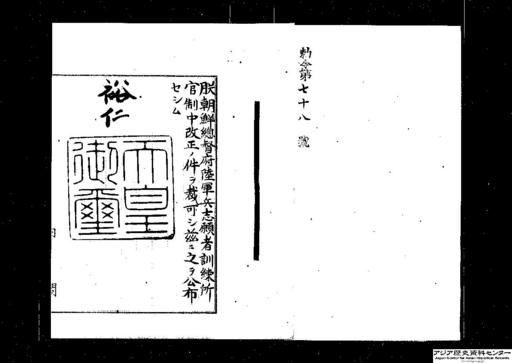 勅令第七十八號
朕朝鮮總督府陸軍兵志願者訓練所
官制中改正ノ件ヲ裁可シ茲ニ之ヲ公布
セシム
裕仁
天皇
御璽
内閣
アジア歴史資料センター
Japan Center for Asian Historical Records